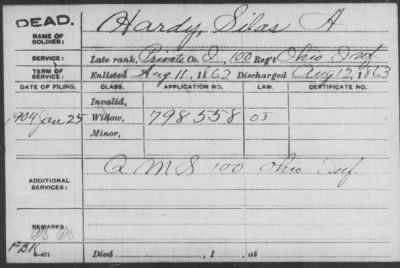 DEAD.
NAME OF SOLDIER: Hardy, Silas H
SERVICE: Late rank, Private Co. D, 100 Reg't Ohio Inf
TERM OF SERVICE: Enlisted Aug 11, 1862 Discharged Aug 12, 1863
DATE OF FILING. CLASS. APPLICATION NO. LAW. CERTIFICATE NO.
Invalid,
1904 Jan 25 Widow, 798558 OJ
Minor,
ADDITIONAL SERVICES: Q M S 100 Ohio Inf.
REMARKS:
Died , 1 , at